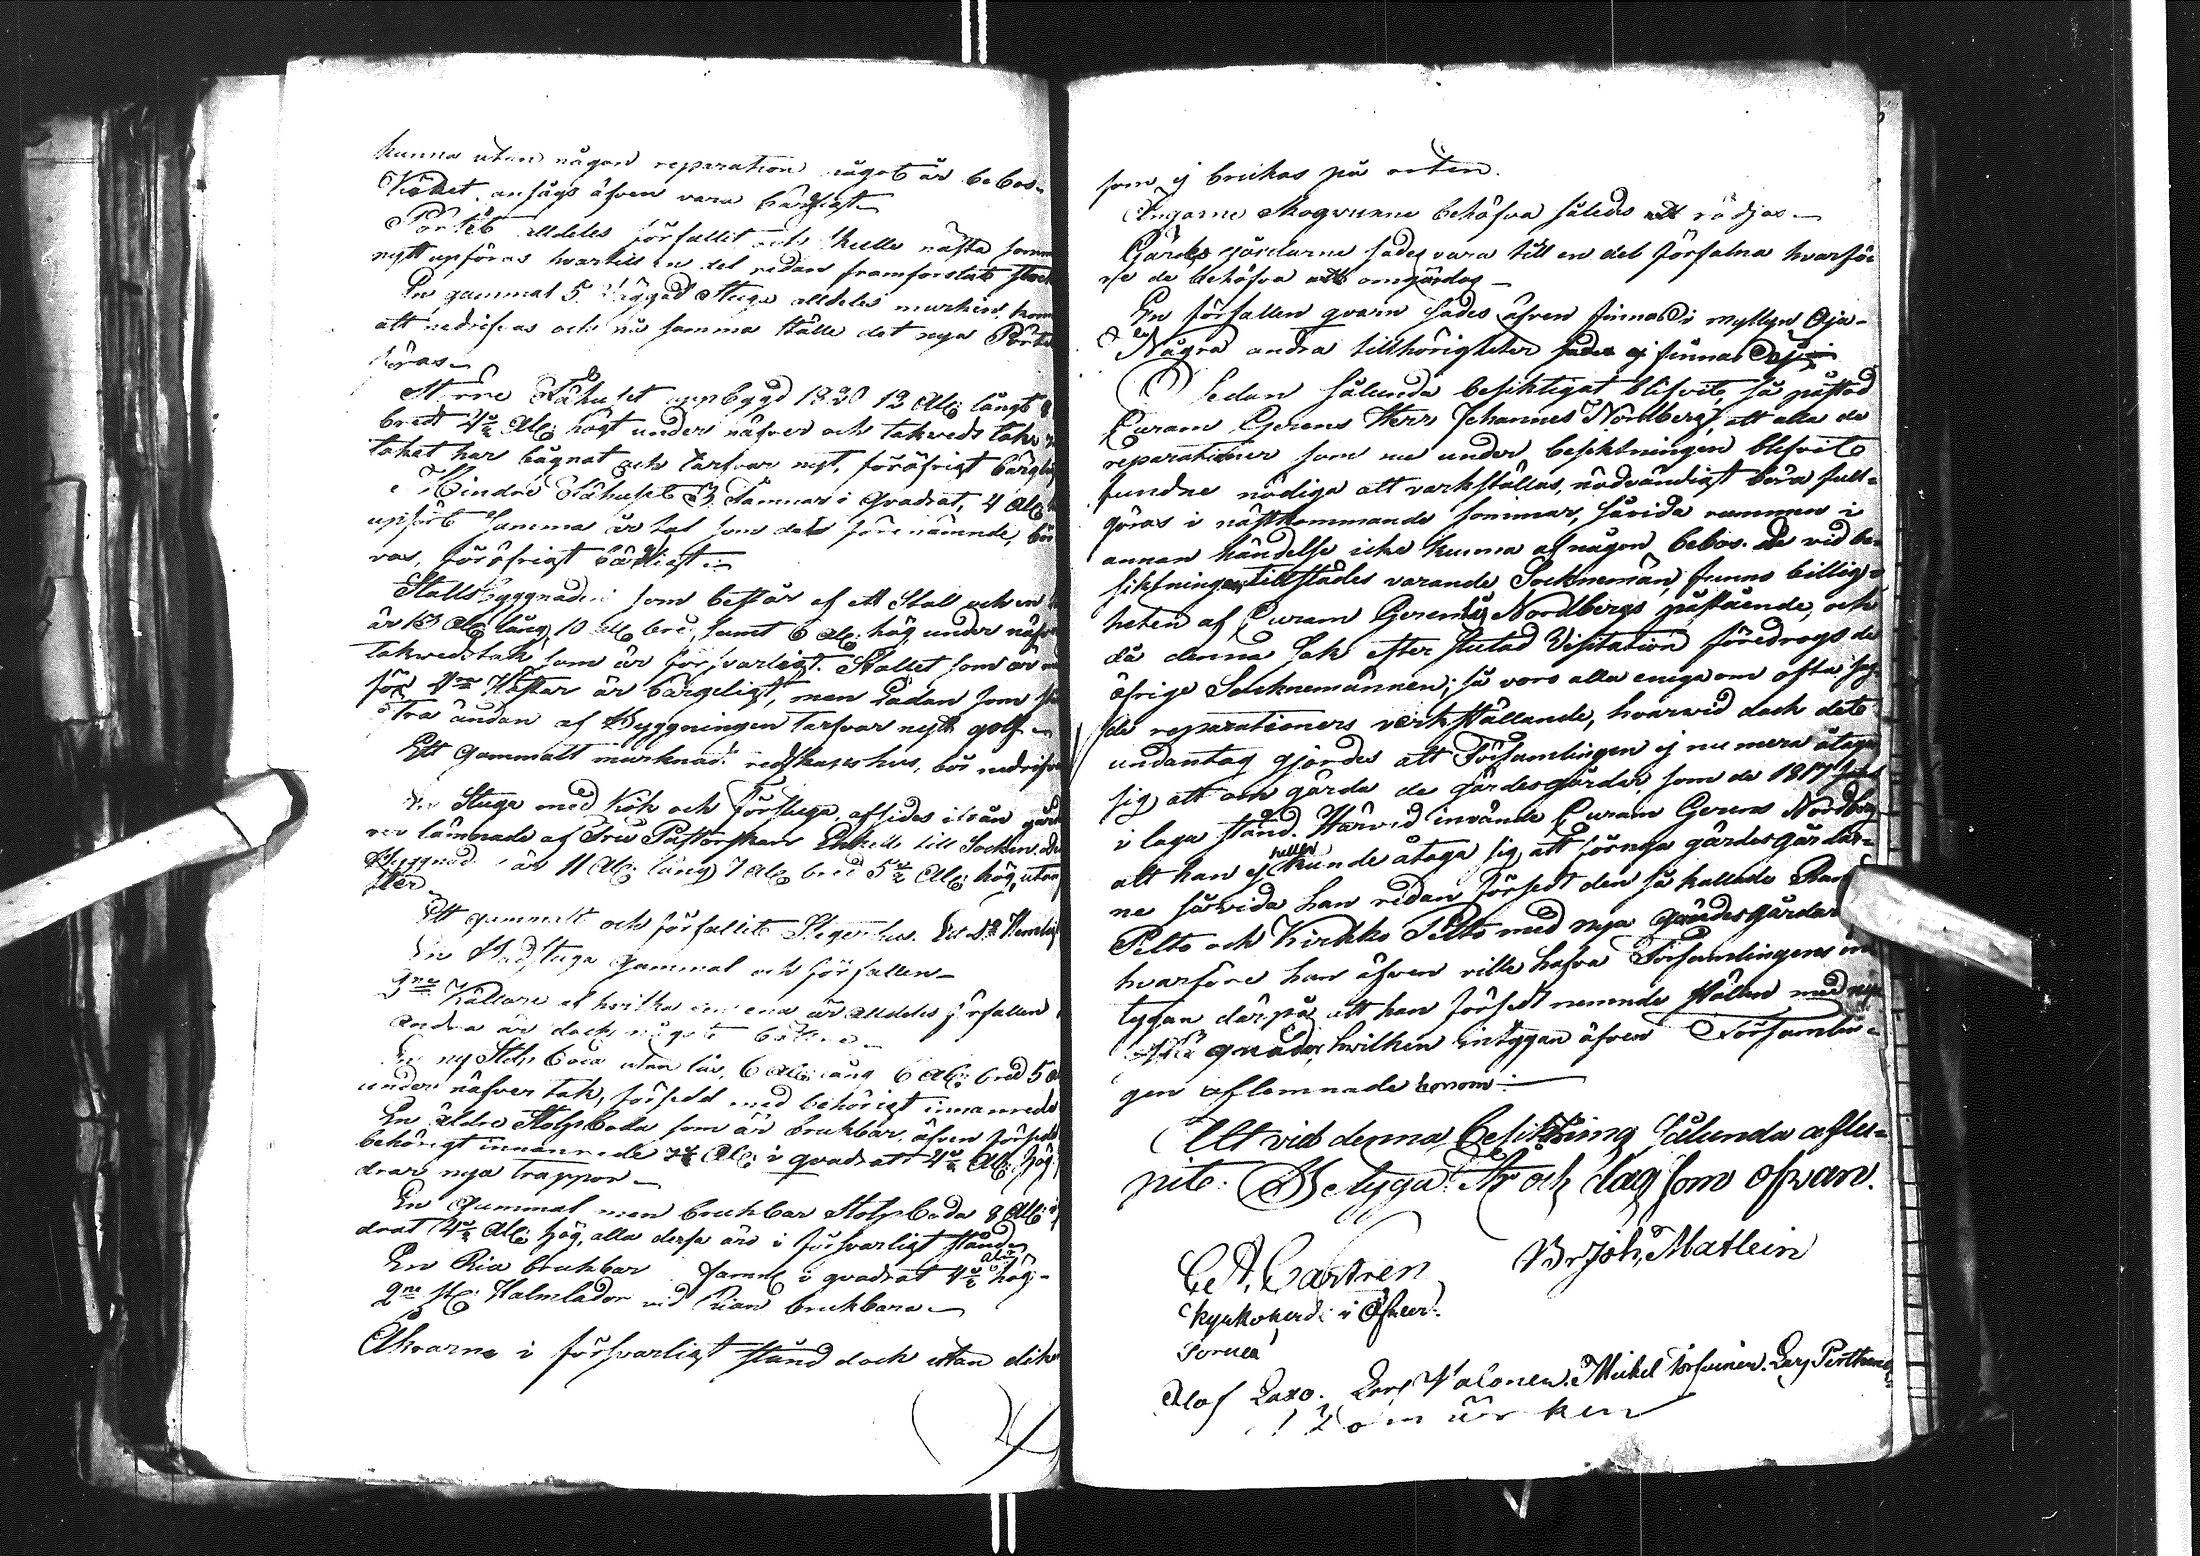 kunna utan någon reparation något år bebos.
Köket ansågs äfven vara bärgligt
Pörtet alldeles förfallit och skulle nästa som
nytt upföras hvartill en del redan framforslats stock
En gammal 5 väggad Stuga alldeles murken, kom
att nedrifvas och på samma ställe det nya Pörte
föras
Större Fähuset uppbygd 1820 12 Al: långt 8
bredt 4½ Al: högt under näfver och takveds tak
taket har bågnat och tarfvar nytt, föröfrigt bärglig
Mindre Fähuset 3 Famnar i qvadrat, 4 Al:
upfört samma år tak som det förenämnde, bör
ras, föröfrigt bärgligt
Stallsbyggnaden som består af ett Stall och en
är 13 Al: lång 10 Al: bred, samt 6 Al: hög under näfver
takvedstak som är försvarligt. Stallet som är
för 4ra Hästar är bärgeligt, men Ladan som
östra ändan af Byggningen tarfvar nytt golf
Ett gammalt murknad redskapshus, bör nedrifva
En Stuga med Kök och förstuga, afsides ifrån gård
ver lämnade af Fru Pastorskan till Socken
Byggnad är 11 Al: lång 7 Al: bred 5½ Al: hög, utan
ster
Ett gammalt och förfallit Stegerhus. Et Do Hemlig
En Badstuga gammal och förfallen
Källare af hvilka den ena är alldeles förfallen
andra är dock något bättre
En ny Stolpboda utan lås, 6 Al: lång 6 Al: bred 5 Al
under näfver tak, försedd med behörigt innanrede
En äldre Stolpboda som är brukbar, äfven försedd
behörigt innanrede 7½ Al: i qvadrat 4½ Al: hög,
drar nya trappor
En gammal men brukbar Stolpboda 8 Al: i
drat 4½ Al: hög, alla dessa äro i försvarligt stånd
En Ria brukbar famn i qvadrat 4½ aln hög
2ne st: Halmlador vid Rian brukbara
Åkrarne i försvarligt stånd dock utan dike
som ej brukas på orten.
Ängarne Skogvuxne behöfva således att rödjas
Gärdes gårdarne sades vara till en del förfalna hvarföre
de behöfva att omgärdas
En förfallen qvarn sades äfven finnas i Myllyn Oja
Några andra tillhörigheter sades ej finnas
Sedan sålunda besiktigat blifvit, så påstod
Curam Gerens Herr Johannes Nordberg, att alla de
reparationer som nu under besiktningen blifvit
fundne nödiga att verkställas, nödvändigt böra full-
göras i nästkommande sommar, såvida rummen i
annan händelse icke kunna af någon bebos. De vid be-
siktningen tillstädes varande Sockneman, funno billig-
heten af Curam Gerens Nordbergs påstående, och
då denna Sak efter slutad Visitation föredrogs de
öfrige Socknemännen; så voro alla eniga om ofta sag-
de reparationers verkställande, hvarvid dock det
undantag gjordes att Församlingen ej numera åtager
sig att om gärda de gärdesgårdar, som de 1817
i laga stånd. Härvid invände Curam Gerens Nordberg
att han ej heller kunde åtaga sig att förnya gärdesgårdar-
ne såvida han redan försedt den så kallade
Pelto och Kirkko Pelto med nya gärdesgårdar
hvarföre han äfven ville hafva Församlingens in-
tygan därpå att han försedt nemnde ställen med nya
hvilken intygan äfven Församlin-
gen aflemnade honom.
Allt vid denna besiktning sålunda aflu-
pit. Betyga År och dag som ofvan.
C. A. Castrén
Kyrkoherde i Öfver
Tornea
Joh, Matlein
Olof Laxo. Lars Valonen. Mickel